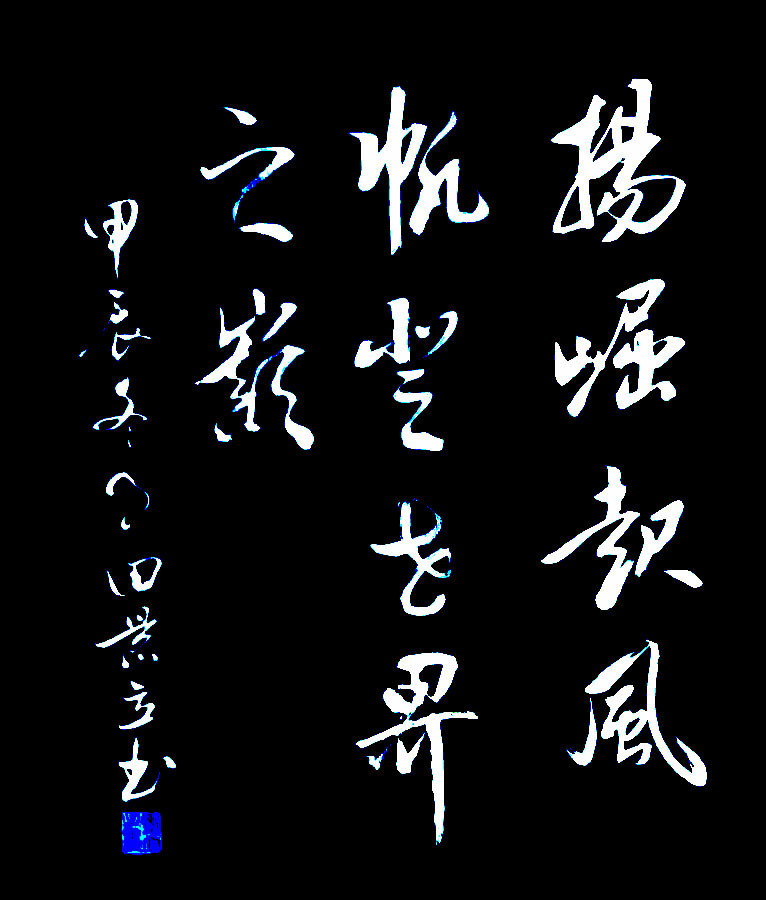 揚崛起風
帆登世界
之巅
甲辰冬月田景立书